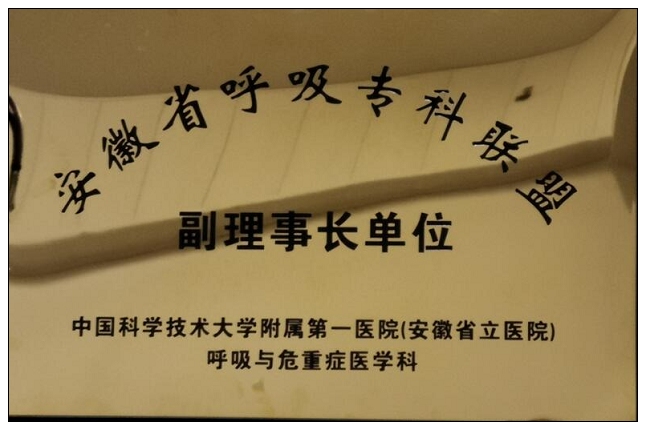 安徽省呼吸专科联盟
副理事长单位
中国科学技术大学附属第一医院(安徽省立医院)
呼吸与危重症医学科